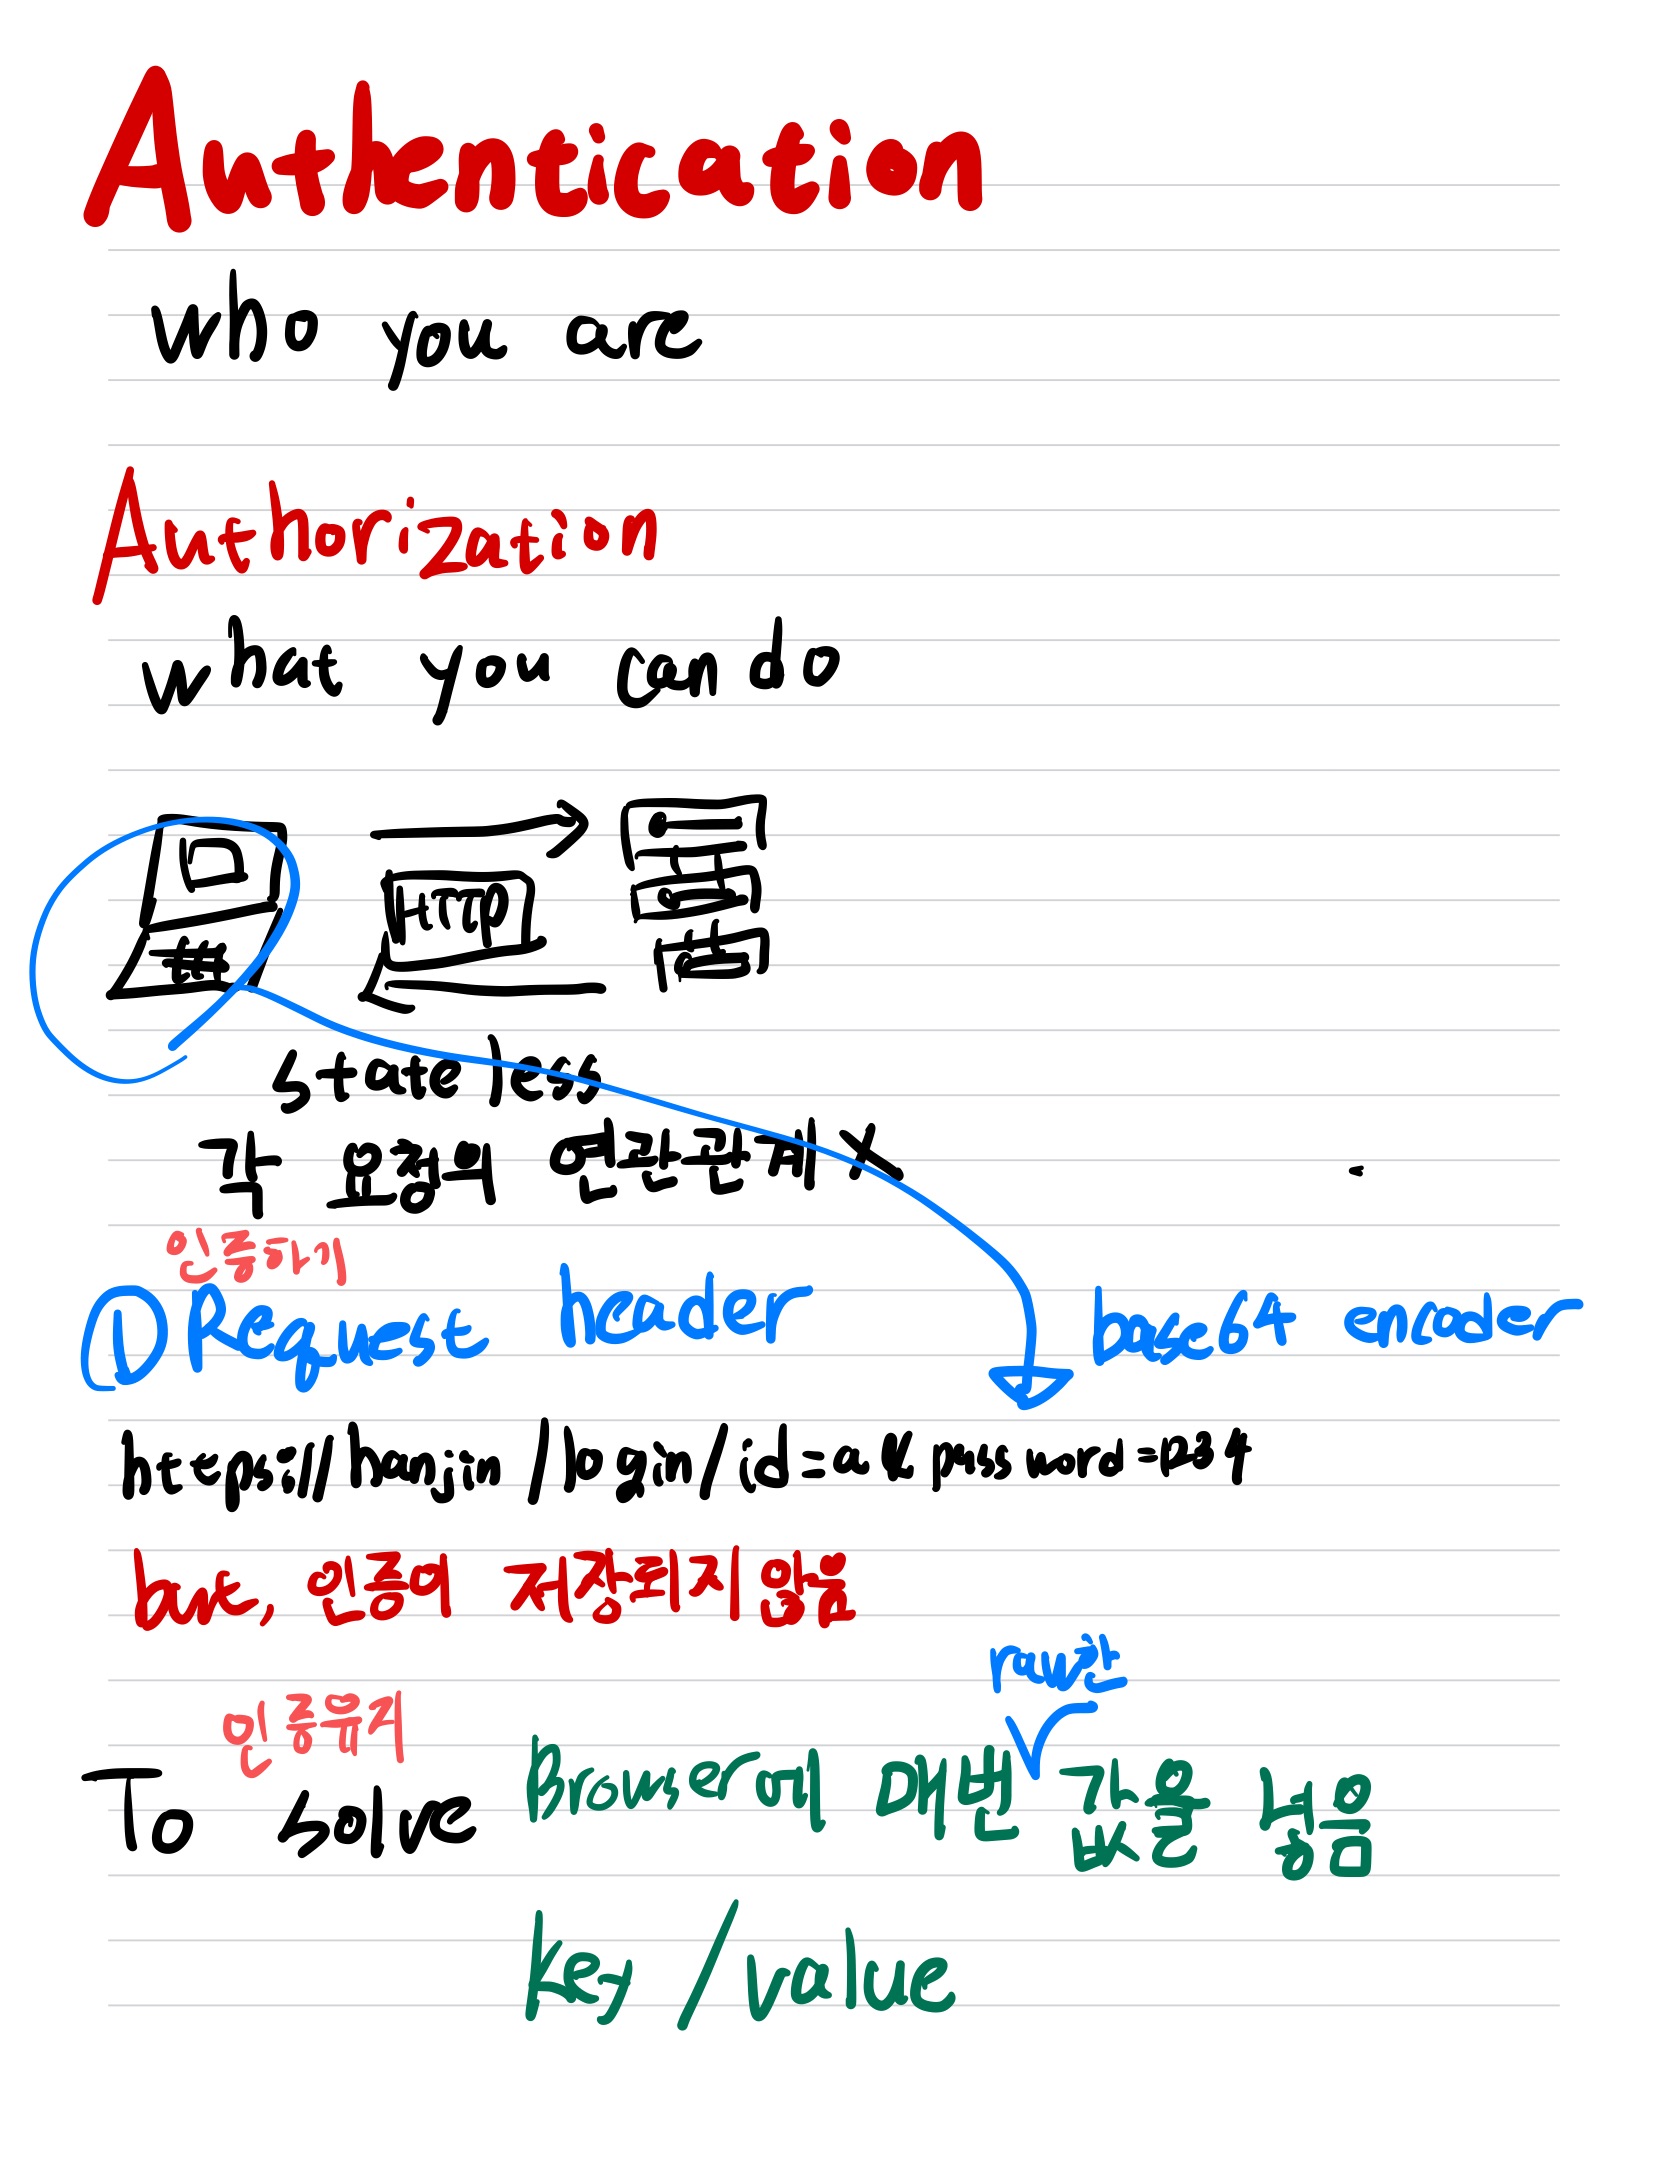 Authentication
who you are
Authorization
what you can do
HTTP
stateless
각 요청의 연관관계 X
인증하기
① Request header
base64 encoder
https://hanjin/login/id=a & password=1234
but, 인증이 저장되지 않음
raw한
인증유지
To solve
Browser에 매번 √ 값을 넣음
key / value